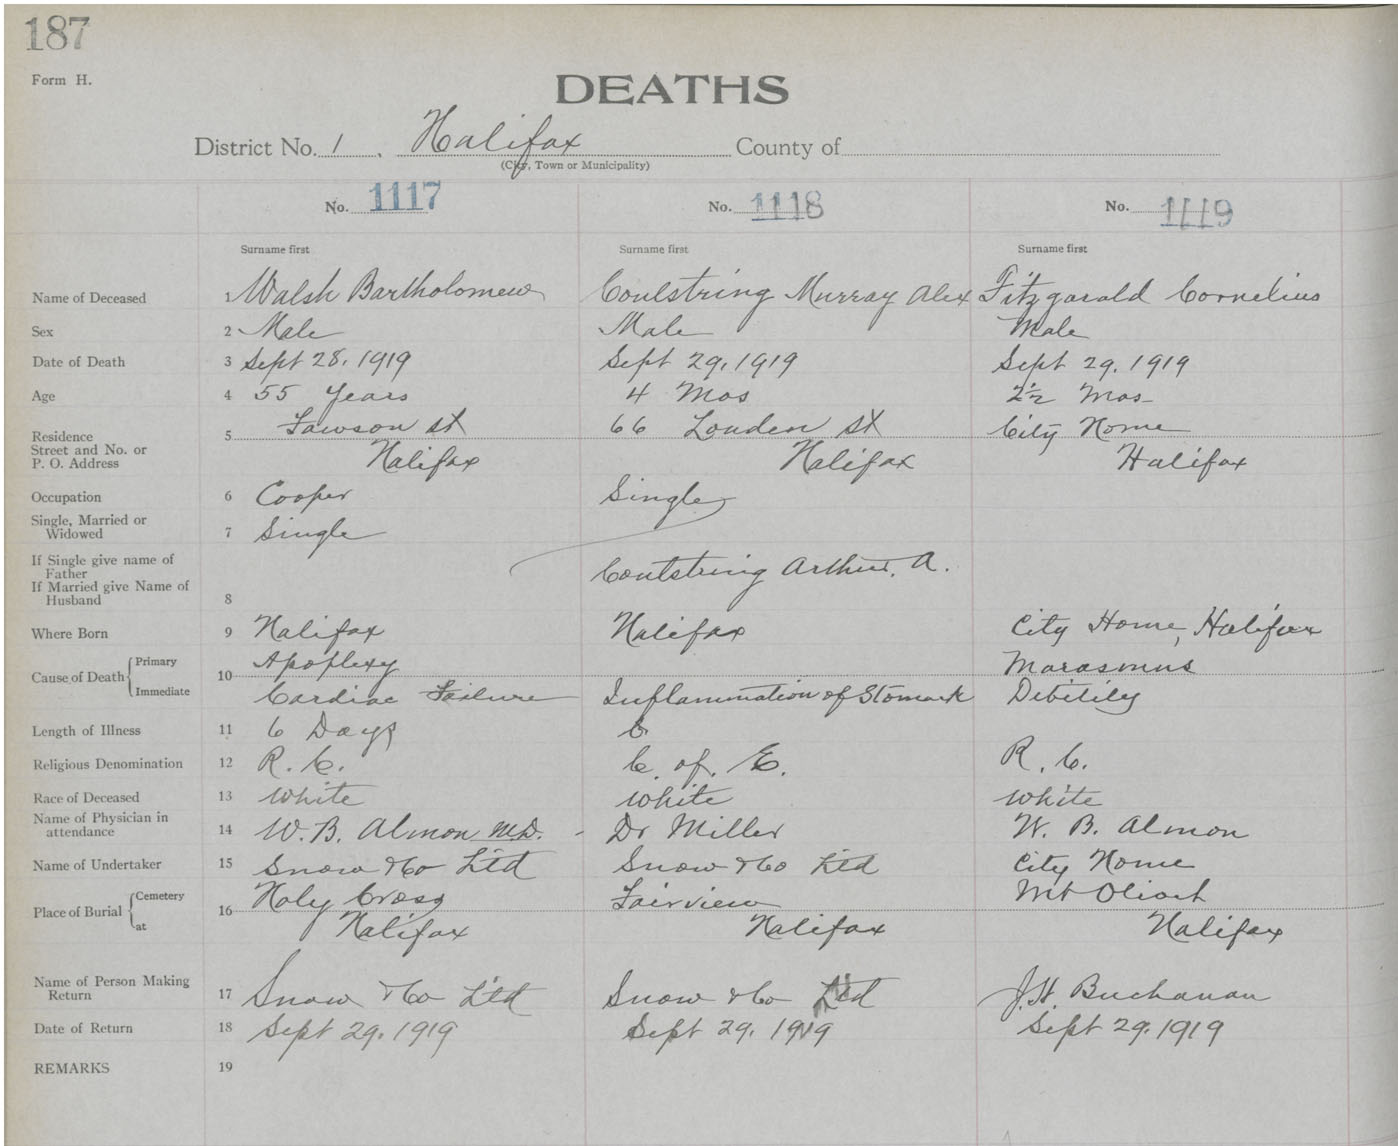 187
Form H.
DEATHS
District No. 1, Halifax County of
(City, Town or Municipality)
No. 1117 No. 1118 No. 1119
Surname first Surname first Surname first
Name of Deceased 1 Walsh Bartholomew Coulstring Murray Alex Fitzgarald Cornelius
Sex 2 Male Male Male
Date of Death 3 Sept 28, 1919 Sept 29, 1919 Sept 29, 1919
Age 4 55 Years 4 Mos 2½ Mos
Residence 5 Lawson St 66 Louden St City Home
Street and No. or
P. O. Address Halifax Halifax Halifax
Occupation 6 Cooper Single
Single, Married or
Widowed 7 Single
If Single give name of
Father Coulstring Arthur. A.
If Married give Name of
Husband 8
Where Born 9 Halifax Halifax City Home, Halifax
Cause of Death Primary 10 Apoplexy Marasmus
Immediate Cardiac Failure Inflammination of Stomack Debitily
Length of Illness 11 6 Days
Religious Denomination 12 R. C. C. of. E. R. C.
Race of Deceased 13 White White White
Name of Physician in
attendance 14 W. B. Almon M.D. Dr Miller W. B. Almon
Name of Undertaker 15 Snow & Co Ltd Snow & Co Ltd City Home
Place of Burial Cemetery 16 Holy Cross Fairview Mt Olivet
at Halifax Halifax Halifax
Name of Person Making
Return 17 Snow & Co Ltd Snow & Co Ltd J. H. Buchanan
Date of Return 18 Sept 29. 1919 Sept 29. 1919 Sept 29. 1919
REMARKS 19